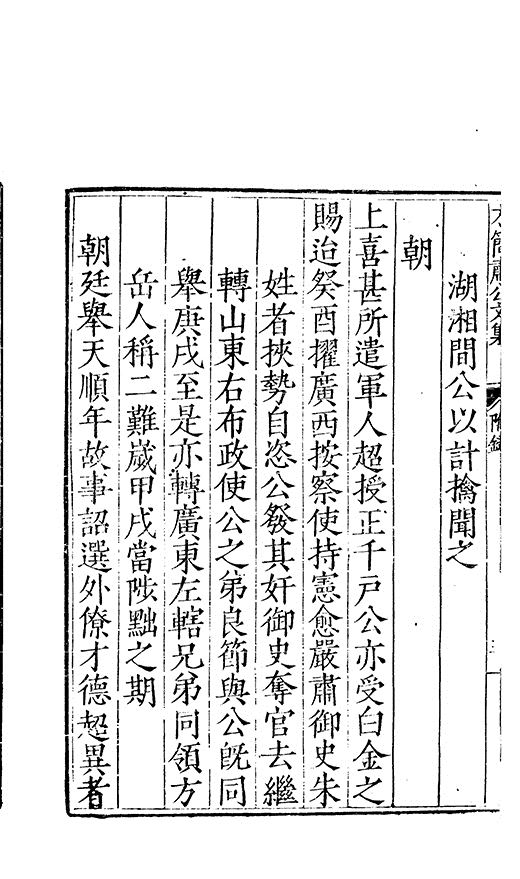 湖湘間公以計擒聞之
朝
上喜甚所遣軍人超授正千戶公亦受白金之
賜迨癸酉擢廣西按察使持憲愈嚴肅御史朱
姓者挾勢自恣公發其奸御史奪官去繼
轉山東右布政使公之弟良節與公旣同
舉庚戌至是亦轉廣東左轄兄弟同領方
岳人稱二難歲甲戌當陟黜之期
朝廷舉天順年故事詔選外僚才德超異者